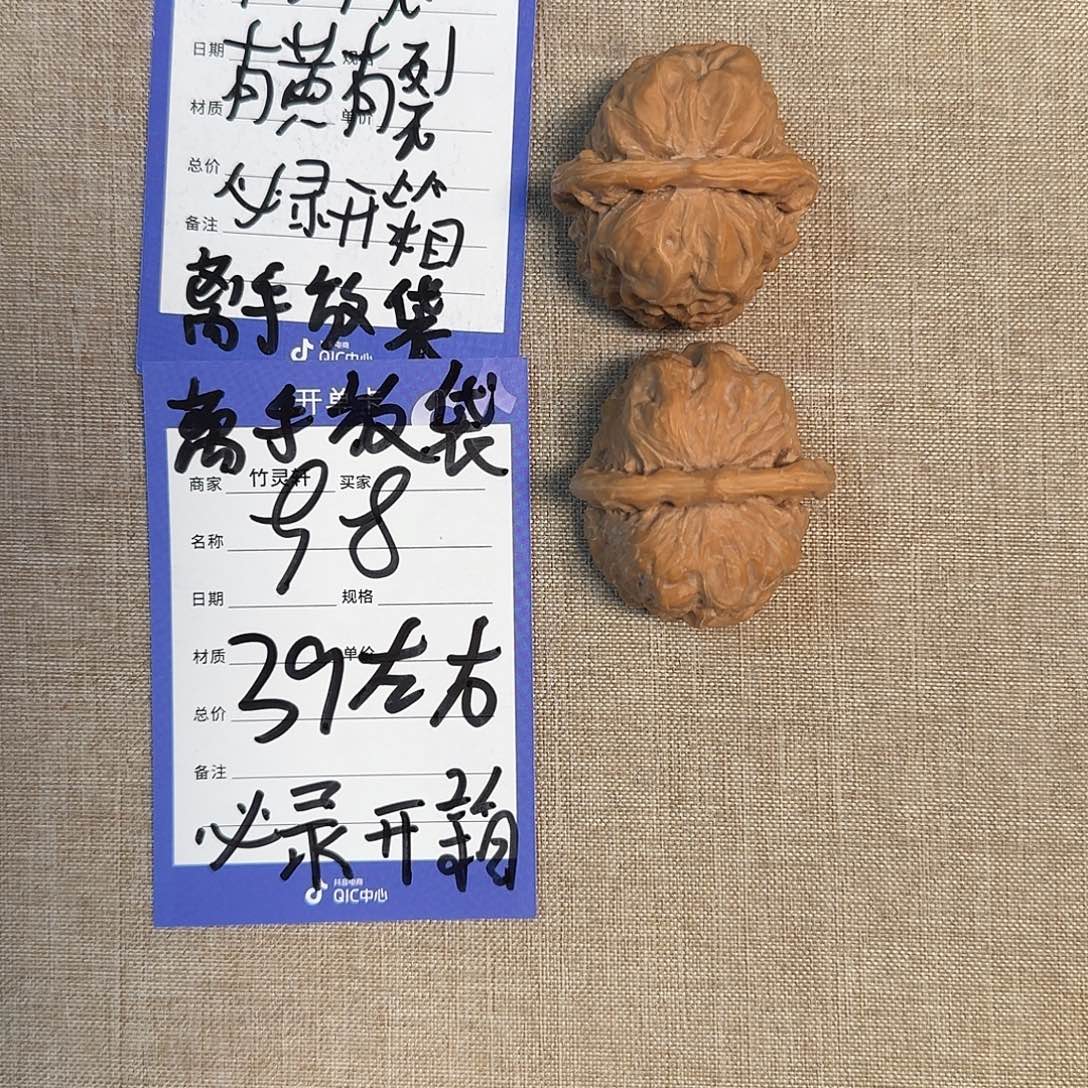 日期 规格
有黄有裂
材质 单价
总价
必録开箱
备注
离手放袋
抖音电商
QIC中心
开单卡
离手放袋
商家 竹灵轩 买家
98
名称
日期 规格
材质 单价
39左右
总价
备注
必录开箱
抖音电商
QIC中心